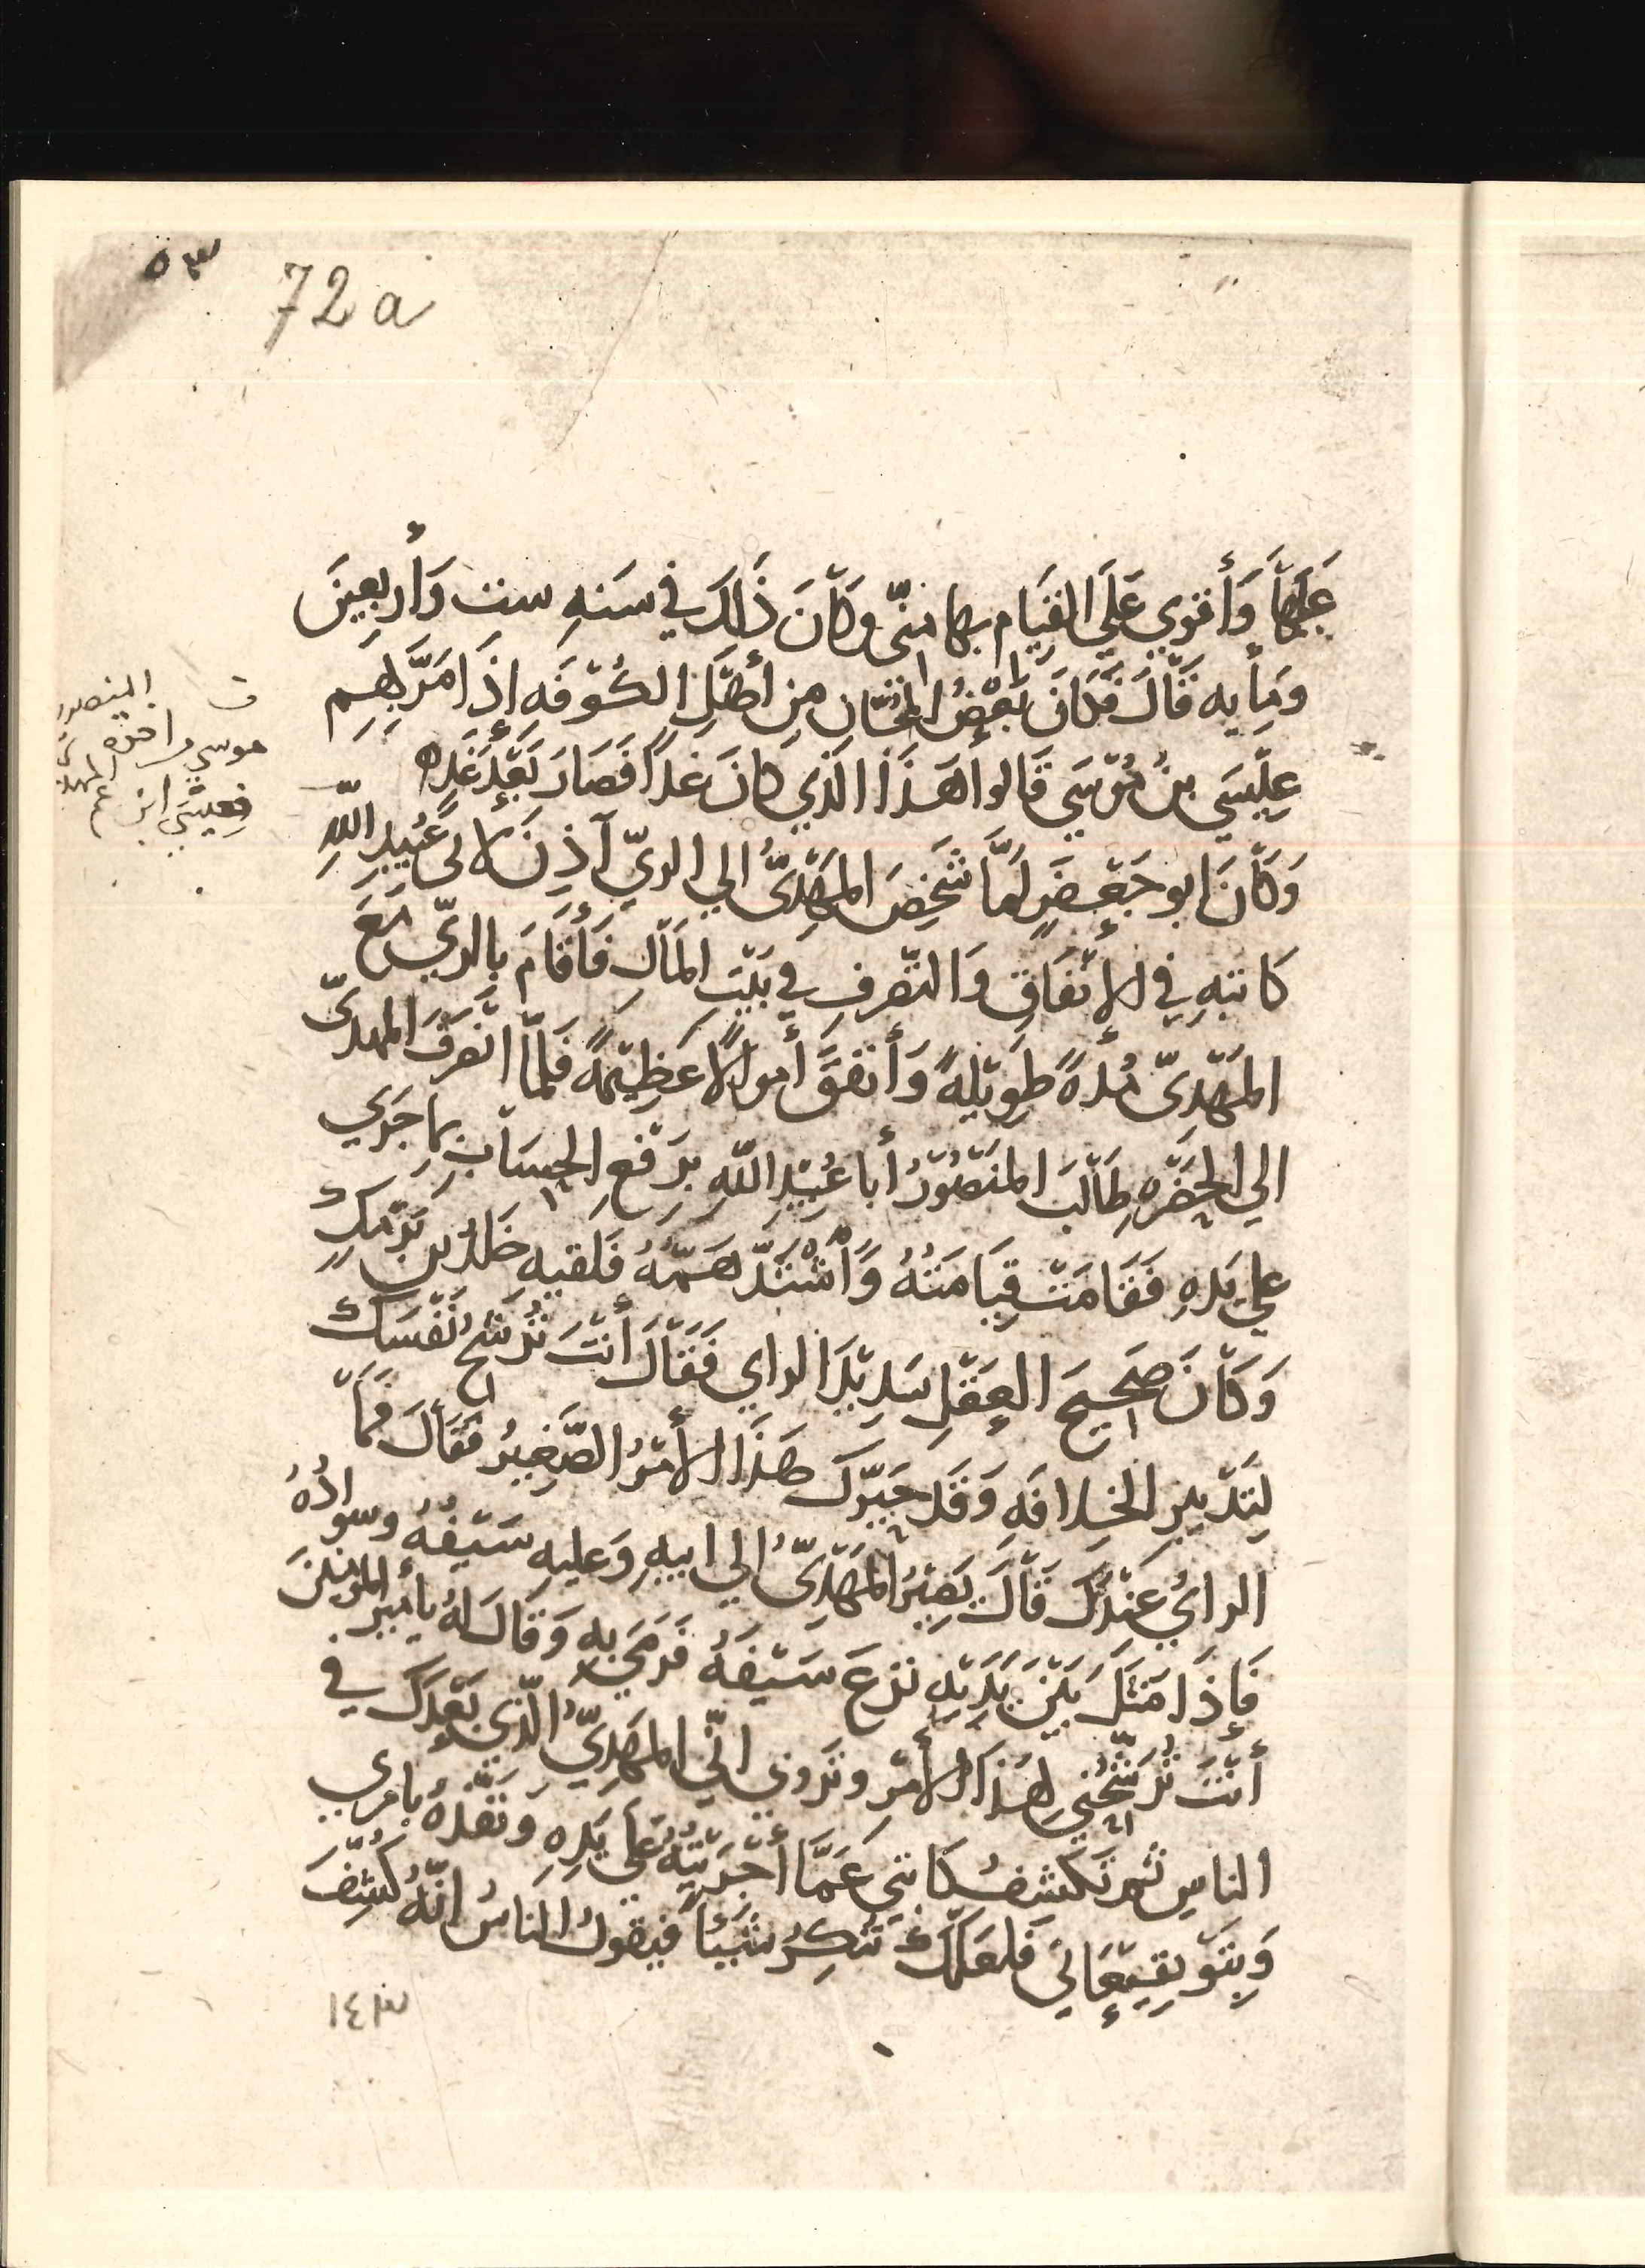 ٥٣
72 a
عَلَيْهَا وَأَقْوي عَلَي القِيَام بها منّي وكَانَ ذَلِكَ في سَنَهِ ست وَأَربعِينَ
ومِأيه قَالَ فَكَانَ بَعْضُ المُجّان مِن أهْلِ الكُوْفَهِ إذَا مَرَّ بِهِم
عِيْسَي بنُ مُوْسَي قَالُوا هَذَا الّذِي كانَ غداً فَصَارَ بَعْدَ غَدٍ
وَكَانَ ابو جَعْفَرٍ لمَّا شَخَصَ المَهْدِيُّ الي الريّ آذِنَ لابي عُبَيدِ اللهِ
كاتبهِ في الأنْفَاقِ وَالتَّصَرفِ في بَيْتِ المَالِ فَأقَامَ بِالريّ مَعَ
المَهْدِيّ مُدهً طَوِيْلهً وَأنفَقَ أموالاً عَظِيْمهً فَلمّا انصَرَفَ المهديّ
الي الحَضْرَهِ طَالَبَ المَنْصُوْرُ أبا عُبَيْدِ اللهِ بِرَفْعِ الحِسَابِ بِمَا جَرَي
علي يَدهِ فَقَامَتْ قِيَامَتُهُ وَاشْتَدَّ هَمّهُ فَلَقيهِ خَلدُ بن بَرْمَكٍ
وَكَانَ صَحِيحَ العَقْلِ سَدِيْدَ الراي فَقَالَ أنتَ تُرَشّحُ نَفْسَكَ
لِتَدْبيرِ الخِلافَهِ وَقَد حَيّرَكَ هَذَا الأمْرُ الصَّغِيرُ فَقَالَ فمَا
الرايُ عِنْدَكَ قَالَ يَصِيْرُ المَهْدِيّ الي ابيهِ وَعَليهِ سَيْفُهُ وسوادُهُ
فَإذَا مَثَلَ بَيْنَ يَدَيْهِ نزعَ سَيْفَهُ فَرَمَي بِهِ وَقَالَ لهُ يا أميرَ المؤمنينَ
أنْتَ تُرَشّحُني لِهَذَا الأمْرِ وتَروِي انّي المَهْدِيّ الّذِي بَعْدَكَ في
الناسِ ثُمّ تكشِفُ كاتبي عَمَّا أجْرَيْتُهُ عَلَي يَدِهِ وَنَفّذهُ بِأمرِي
وَبِتَوْقِيعَاتي فَلَعَلّكَ تُنْكِرُ شَيْئاً فيقولُ الناسُ انّهُ كُشِفَ
١٤٣
المنصور
موسي اخوه
المهدي
فعيسَي ابن عم